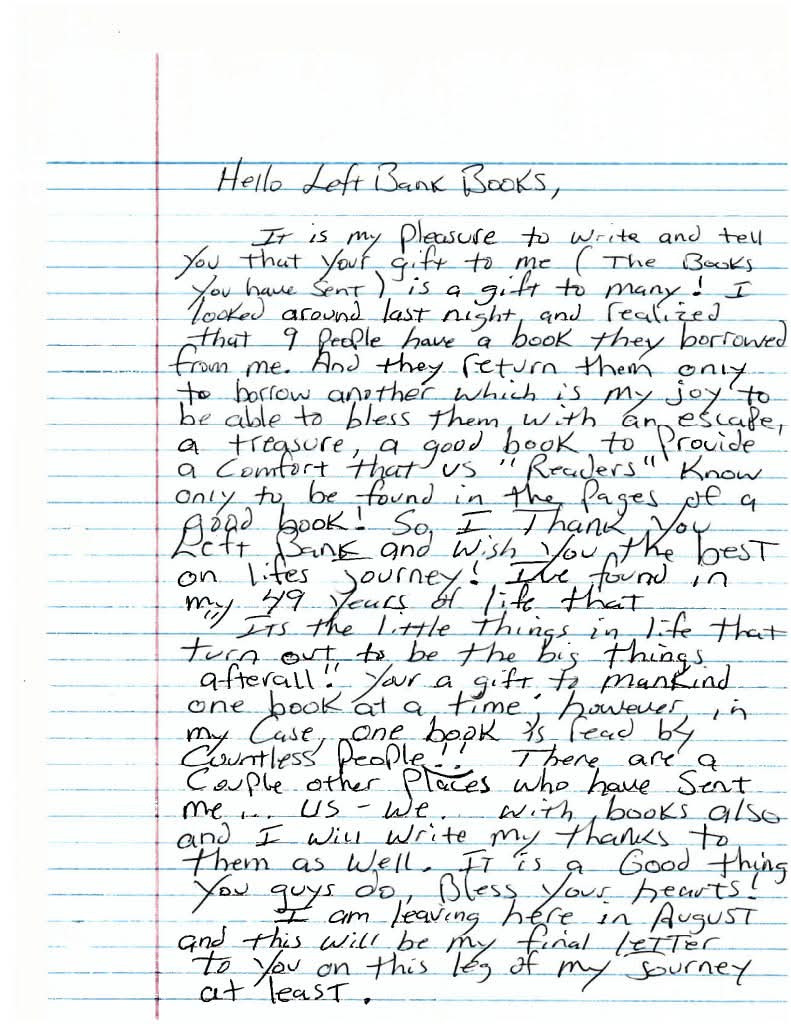 Hello Left Bank Books,
It is my pleasure to write and tell
you that your gift to me (The Books
you have sent) is a gift to many! I
looked around last night, and realized
that 9 people have a book they borrowed
from me. And they return them only
to borrow another which is my joy to
be able to bless them with an escape,
a treasure, a good book to provide
a comfort that us "Readers" know
only to be found in the pages of a
good book! So, I Thank you
Left Bank and wish you the best
on lifes journey! I've found in
my 49 years of life that
"Its the little things in life that
turn out to be the big things
afterall". Your a gift to mankind
one book at a time; however, in
my case, one book is read by
countless people!! There are a
couple other places who have sent
me... us - we.. with books also
and I will write my thanks to
them as well. It is a Good thing
you guys do, Bless your hearts!
I am leaving here in August
and this will be my final letter
to you on this leg of my journey
at least.